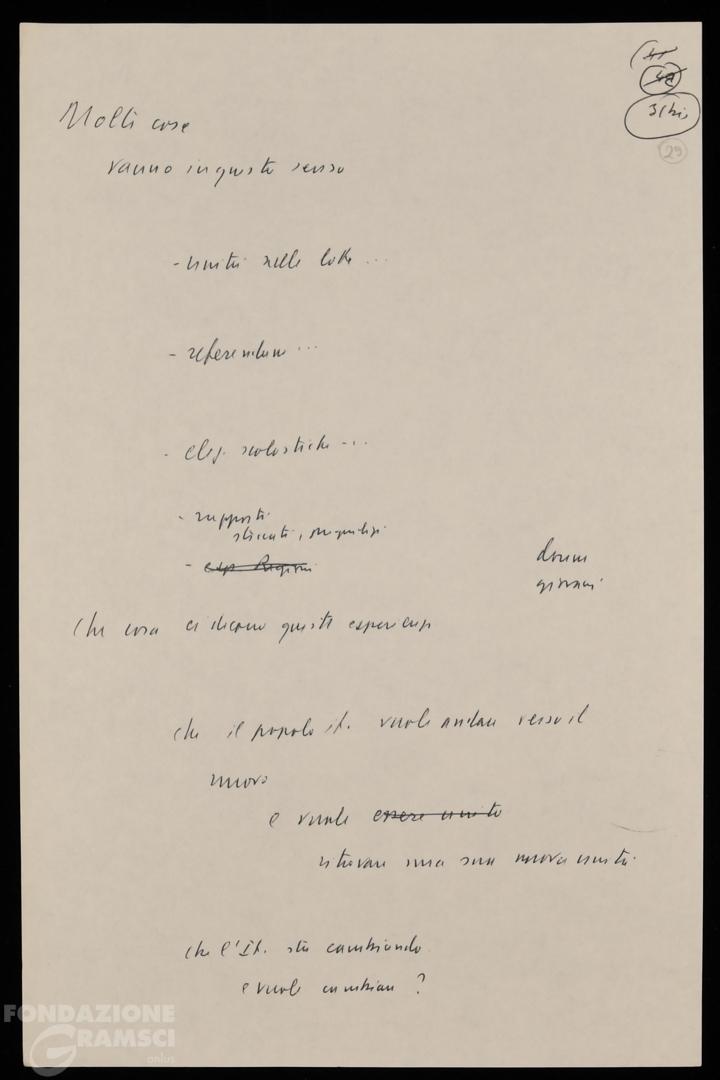 31bis
29
Molte cose
vanno in questo senso
- unità nelle lotte ...
- referendum ...
- elez. scolastiche ...
- rapporti
- esp. Regioni
donne
giovani
Che cosa ci dicono queste esperienze
che il popolo it. vuole andare verso il
nuovo
e vuole essere unito
ritrovare una sua nuova unità
che l'It. sta cambiando
e vuole cambiare ?
FONDAZIONE
GRAMSCI
onlus